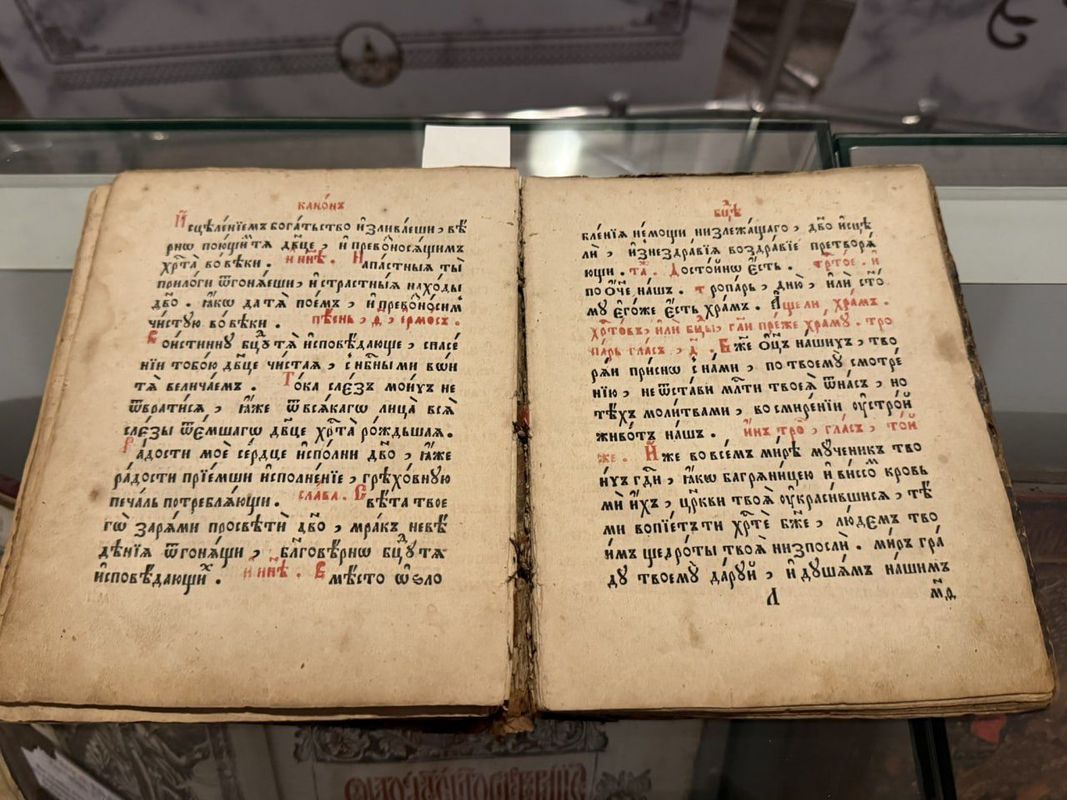 канѡ́нъ
И҆сцѣле́нїемъ бога́тьство и҆зливае́ши, вѣ́
рнѡ пою́щимъ тѧ̀ дв҃це, и҆ превѡ҆́носѧщимъ
хрⷭ҇та̀ во вѣ́ки. и҆ нн҃ѣ. Напа́стныѧ ты̀
прило́ги ѿгонѧ́еши, и҆ стра́стныѧ нахо́ды
дв҃о. ꙗ҆́кѡ да тѧ̀ пое́мъ, и҆ превѡ҆́носи́м
чи́стую во вѣ́ки. пѣ́снь, ѳ҃, е҆рмо́съ.
Вои́стинну бцⷣꙋ тѧ̀ и҆сповѣ́дающе, спасе́
нїи тобо́ю дв҃це чи́стаѧ, с нб҃ными во́и
тѧ̀ велича́емъ. То́ка сле́зъ мои́хъ не
ѿврати́сѧ, ꙗ҆́же ѿ всѧ́кагѡ лица̀ всѧ̀
сле́зы ѿе́мшаго дв҃це хрⷭ҇та̀ ро́ждьшаѧ.
Ра́дости моѐ се́рдце и҆спо́лни дв҃о, ꙗ҆́же
ра́дости прїе́мши и҆сполне́нїе, грѣхо́вную
печа́ль потреблѧ́ющи. сла́ва. Свѣ́та твое
гѡ̀ зарѧ́ми просвѣтѝ дв҃о, мра́къ невѣ́
дѣнїѧ ѿгонѧ́ющи, бл҃говѣ́рнѡ бцⷣꙋ тѧ
и҆сповѣ́дающих. и҆ нн҃ѣ. В мѣ́сто ѡ҆ѕло
бцⷣѣ
бле́нїѧ не́мощи низлежа́щаго, дв҃о и҆сцѣ
лѝ, и҆ з нездра́вїѧ во здра́вїе претворѧ́
ющи. та́. Досто́йнѡ є҆́сть. трⷭ҇то́е. и
по ѻ҆́ч҃е на́шъ. тропа́рь, дню̀, и҆лѝ ст҃о́
му є҆го́же є҆́сть хра́мъ. А҆́ще ли хра́мъ.
хрⷭ҇то́въ, и҆лѝ бцⷣы, гл҃и пре́же хра́му. тро
па́рь гла́съ, д҃. Бж҃е ѻ҆ц҃ъ на́шихъ, тво
рѧ́и при́сно с на́ми, по твоему̀ смотре́
нїю, не ѿста́ви млⷭ҇ти твоеѧ̀ ѿ на́съ, но
тѣ́хъ моли́твами, во смире́нїи ᲂу҆стро́й
живо́тъ на́шъ. и҆́нъ тро, гла́съ, то́й
же. И҆́же во все́мъ ми́рѣ мч҃никъ тво
и́хъ гдⷭ҇и, ꙗ҆́кѡ багрѧни́цею и҆ ви́ссо кровь
мѝ и҆́хъ, цр҃кви твоѧ̀ ᲂу҆краси́вшисѧ, тѣ́
ми вопїе́тъ ти хрⷭ҇тѐ бж҃е, лю́демъ тво
и́мъ щедро́ты твоѧ̀ низпослѝ. ми́ръ гра́
ду твоему̀ да́руй, и҆ душа́мъ на́шимъ
Л
м҃д